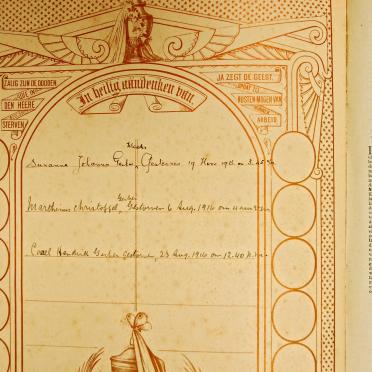 ZALIG ZIJN DE DOODEN
DIE IN
DEN HEERE
STERVEN
JA ZEGT DE GEEST,
OPDAT ZIJ
RUSTEN MOGEN VAN
ARBEID
In heilig aandenken van.
Susanna Johanna Gerber, Gestorven 19 Nov.
Gerber
Marthinus Christoffel, Gestorven 6 Aug. 1916 om
Coael Hendrik Gerber gestorven, 23 Aug. 1916 om 12.40